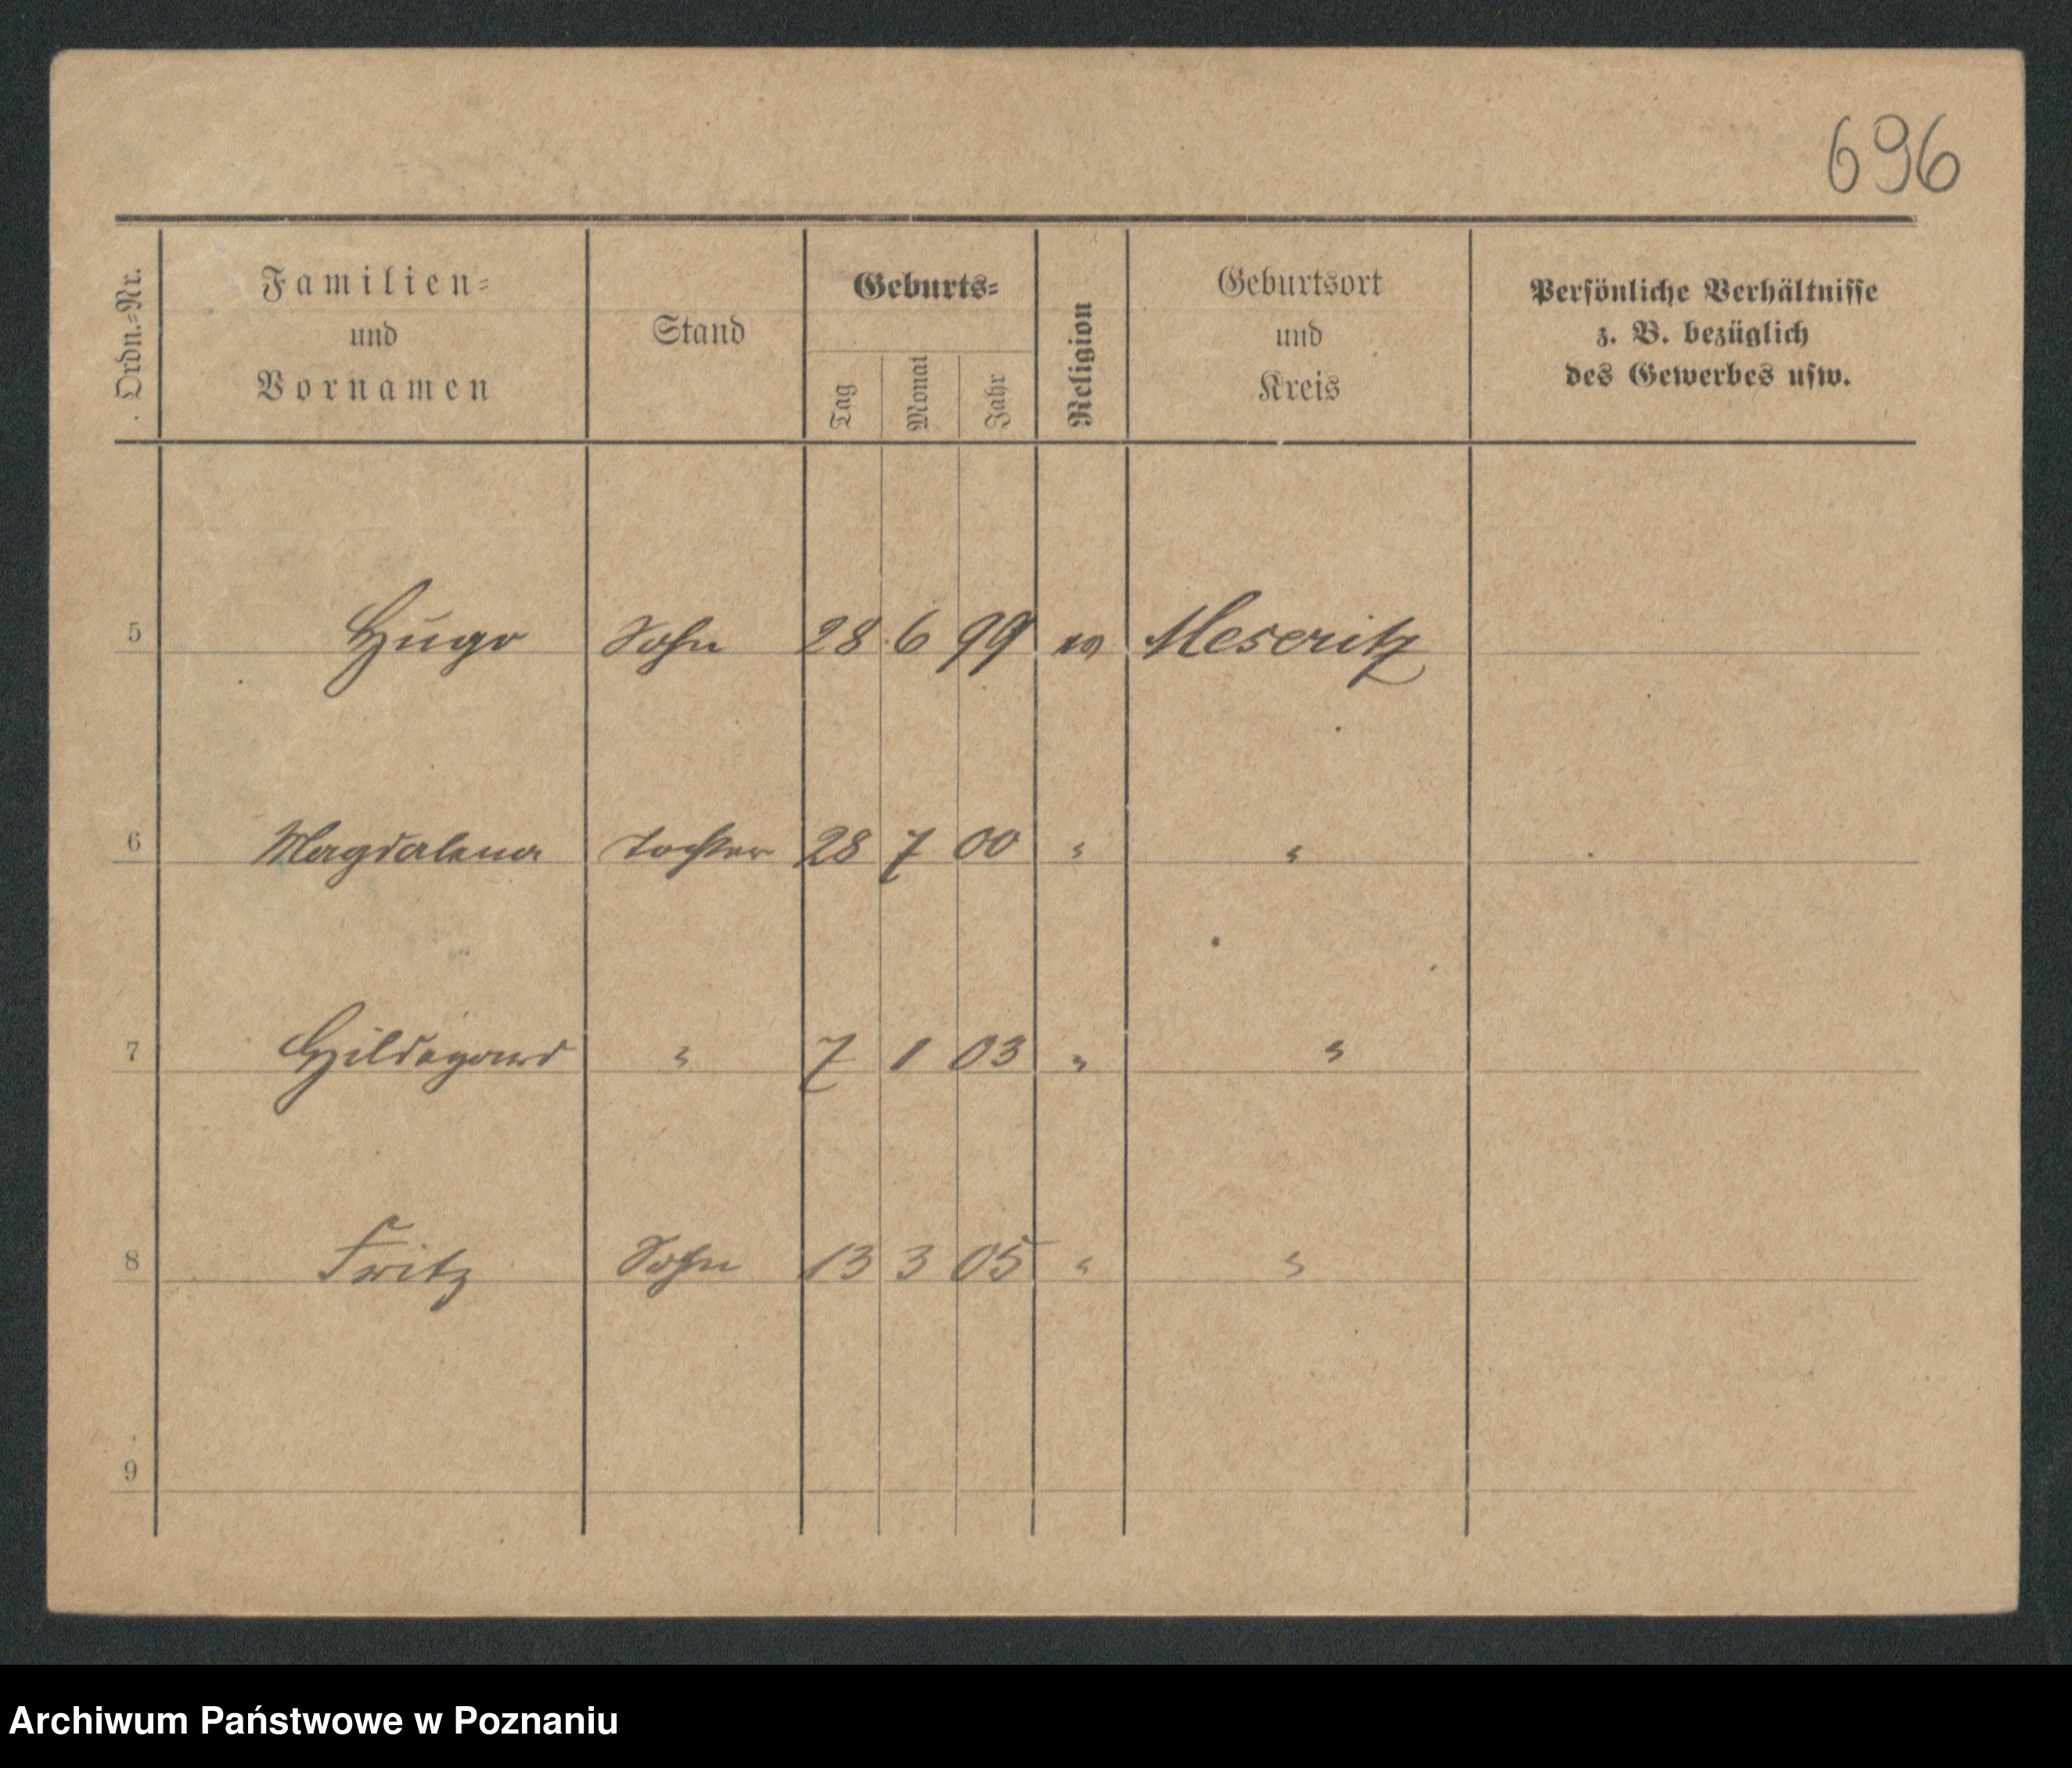 696
Ordn.-Nr.
Familien-
und
Vornamen
Stand
Geburts-
Tag
Monat
Jahr
Religion
Geburtsort
und
Kreis
Persönliche Verhältnisse
z. B. bezüglich
des Gewerbes usw.
5 Hugo Sohn 28 6 99 ev Meseritz
6 Magdalena Tochter 28 7 00 " "
7 Hildegard " 7 1 03 " "
8 Fritz Sohn 13 3 05 " "
9
Archiwum Państwowe w Poznaniu